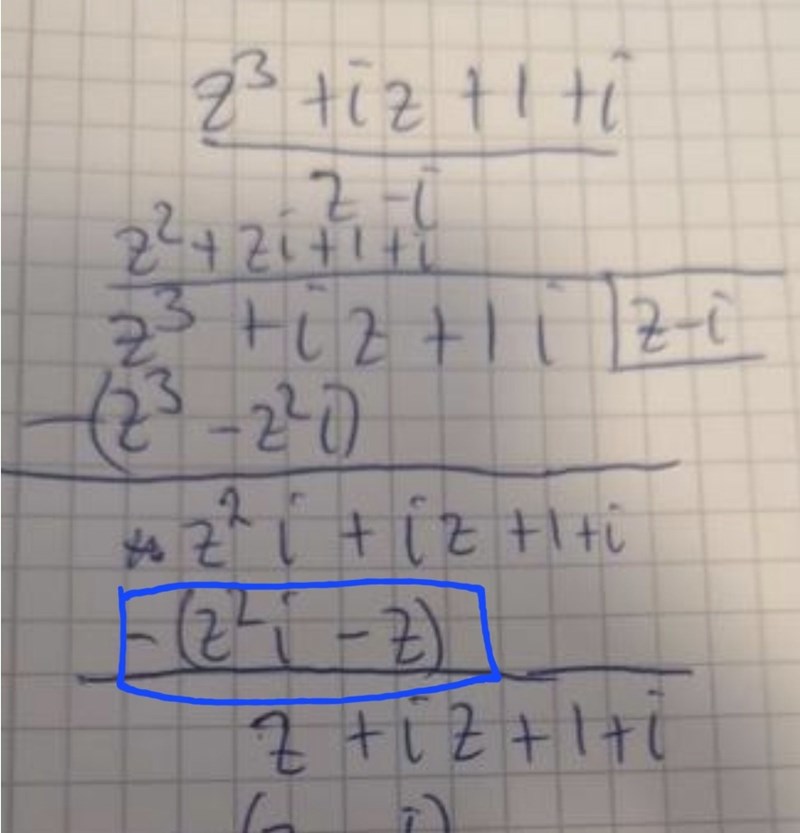 z³ + i z + 1 + i
z - i
z² + zi + 1 + i
z³ + i z + 1 i z - i
-(z³ - z² i)
z² i + i z + 1 + i
-(z² i - z)
z + i z + 1 + i